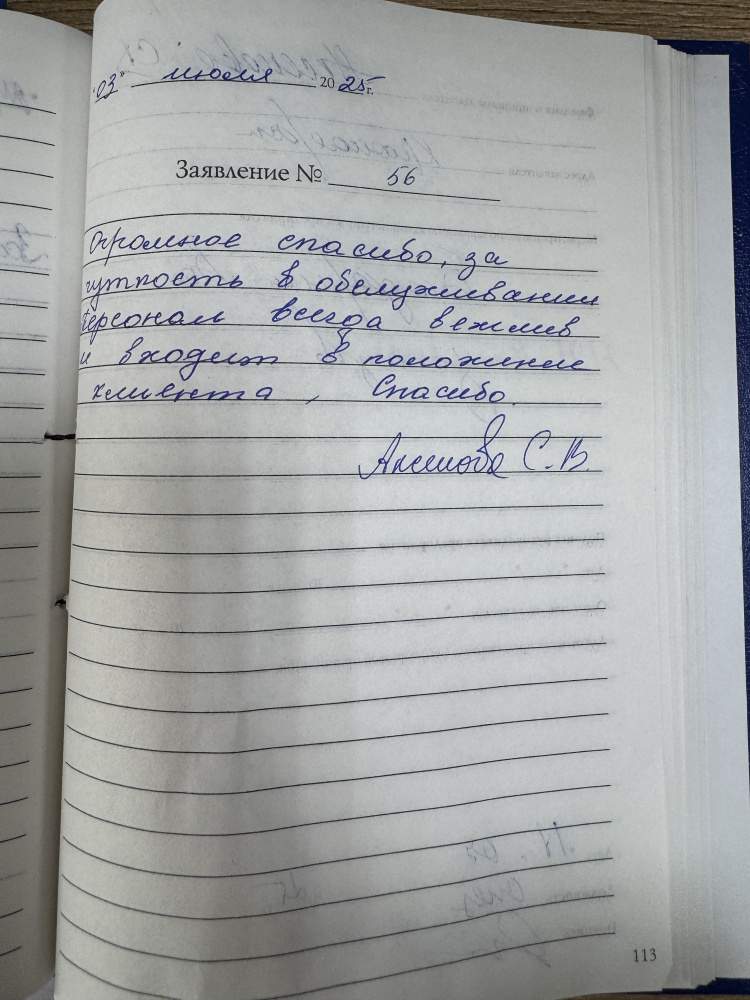 "03" июля 2025 г.
Заявление № 56
Огромное спасибо, за
чуткость в обслуживании
персонал всегда вежлив
и входит в положение
клиента, Спасибо.
С.В.
113